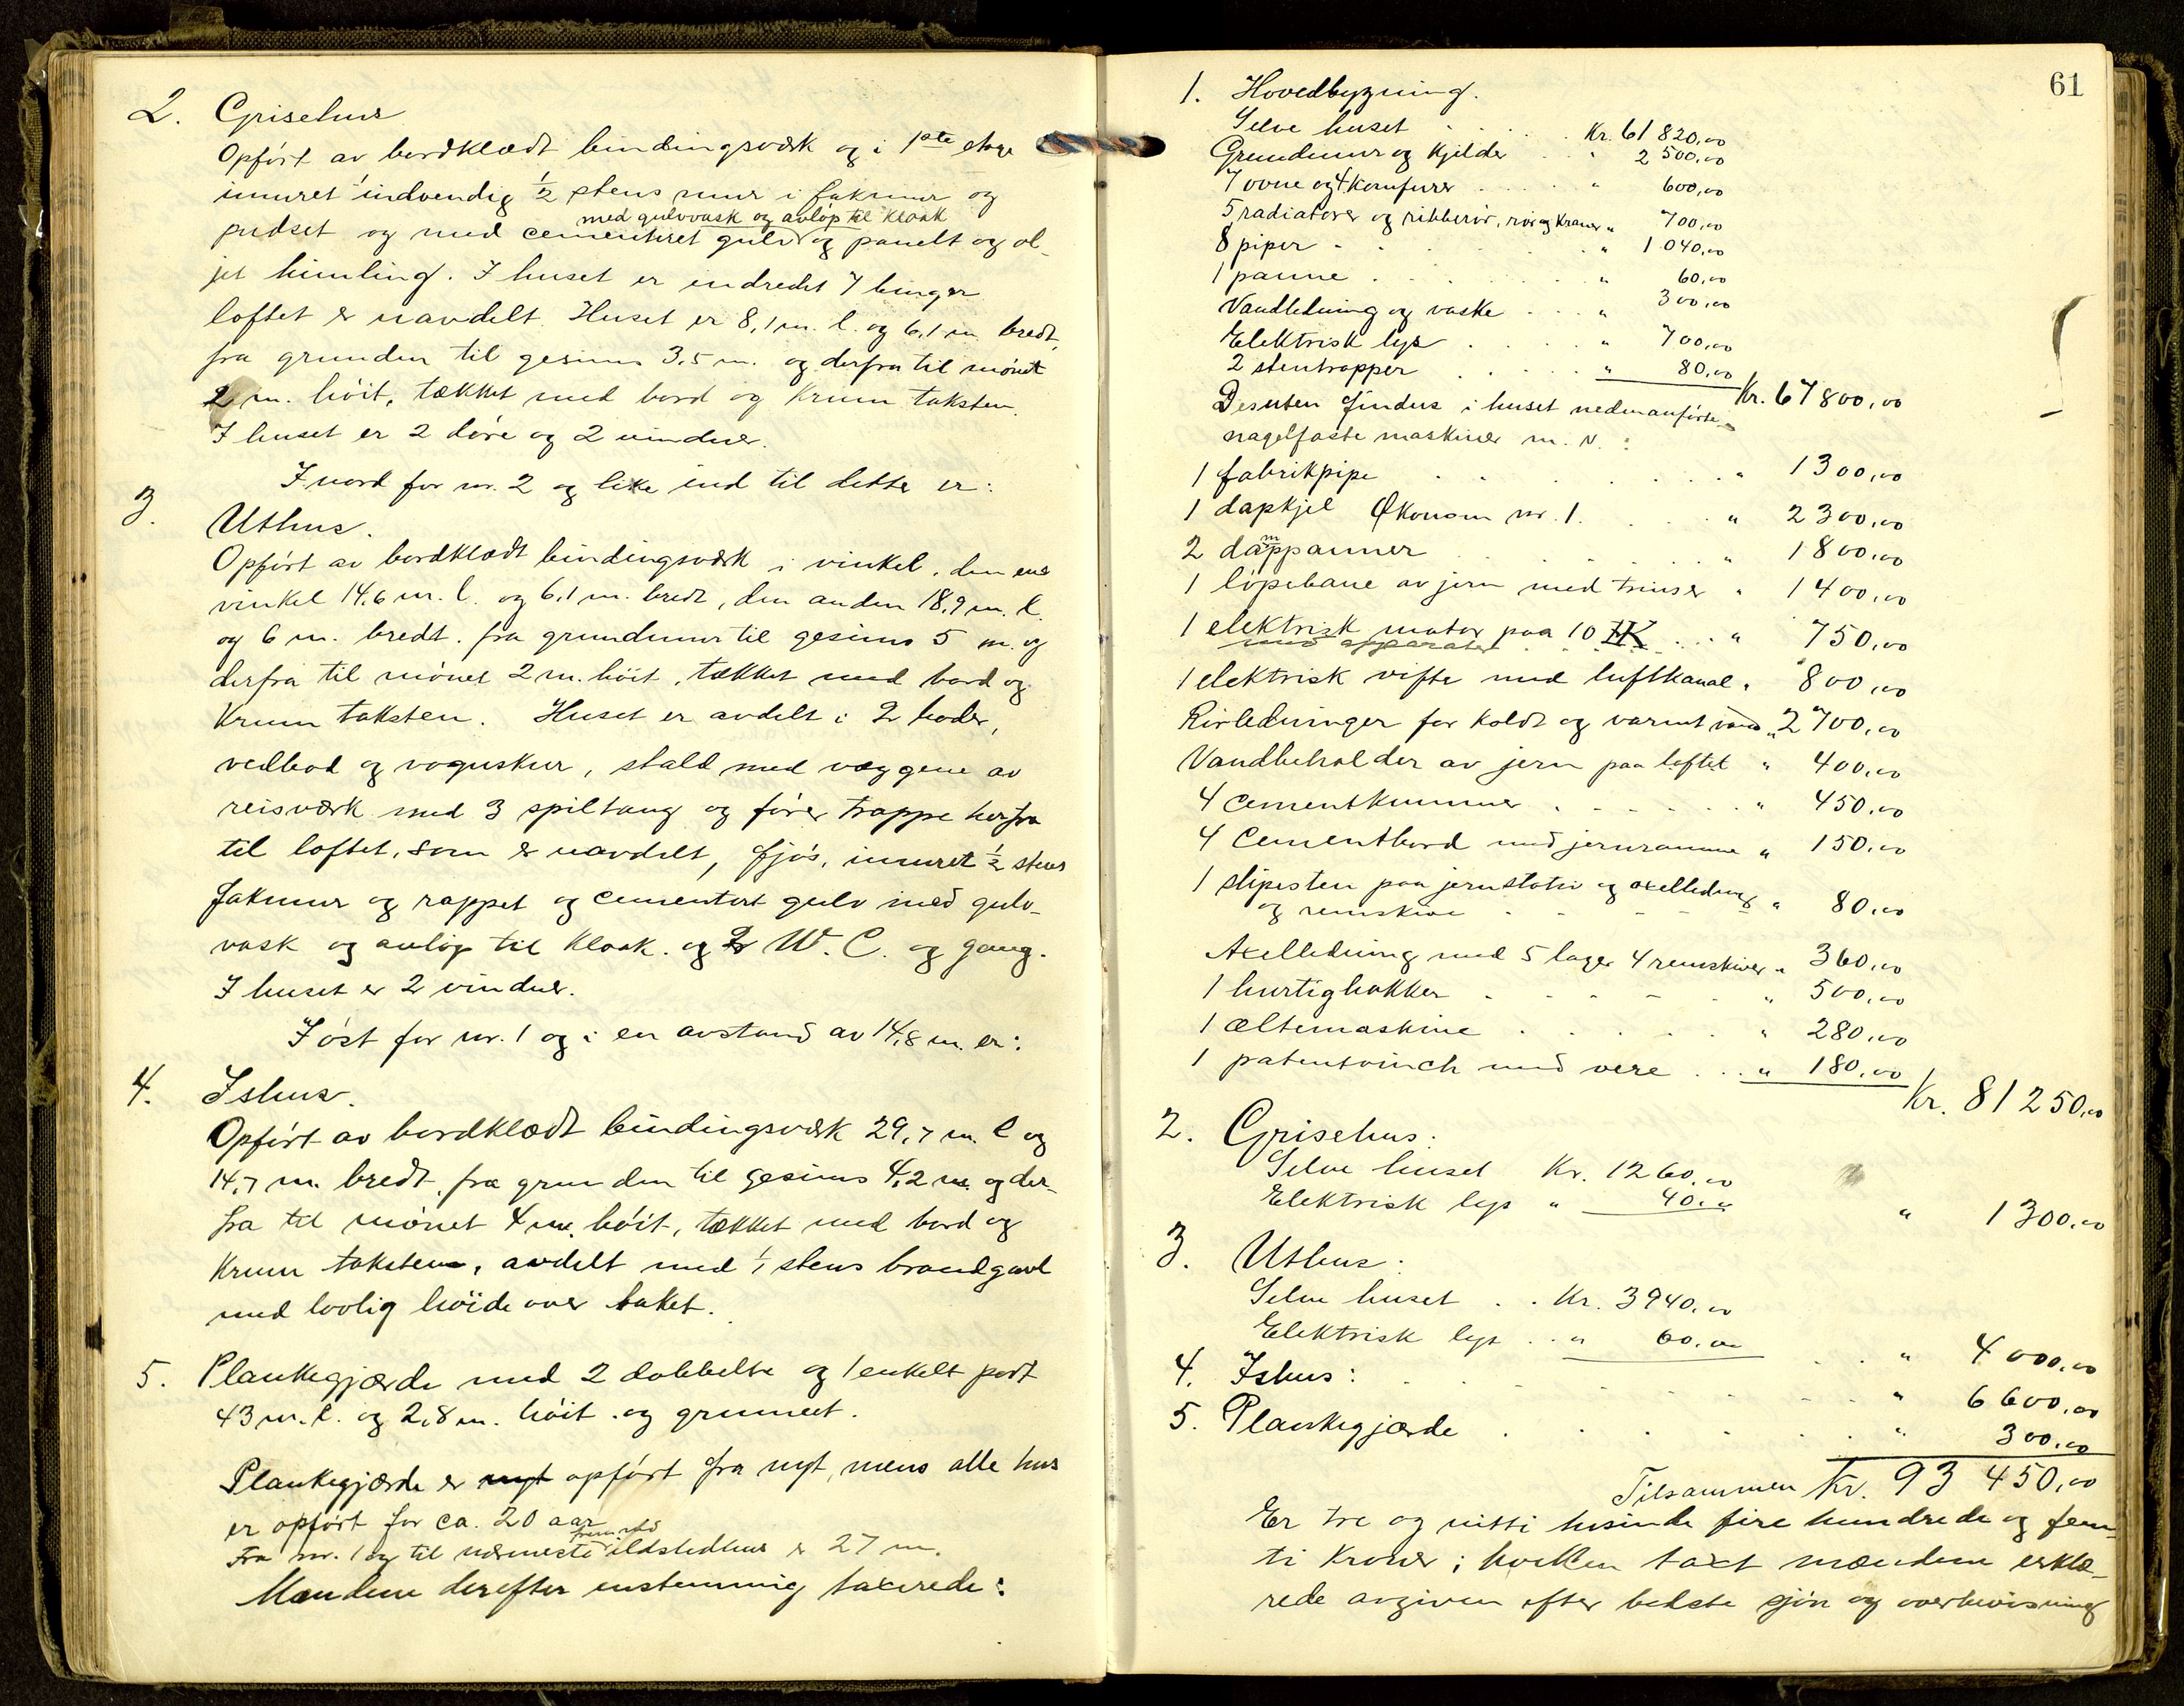 2. Grisehus
Opført av bordklædt bindingsværk og i 1ste etage
inuret indvendig ½ stens mur i fakmur og
med gulvvask og avløp til kloak
pudset og med cementeret gulv og panelt og ol-
jet himling. I huset er indredet 7 binger
loftet er uavdelt. Huset er 8,1 m. l. og 6,1 m bredt,
fra grunden til gesims 3,5 m. og derfra til mønet
2 m. høit, tækket med bord og krum taksten.
I huset er 2 døre og 2 vinduer.
I nord for nr. 2 og like ind til dette er:
3. Uthus.
Opført av bordklædt bindingsværk i vinkel, den ene
vinkel 14,6 m. l. og 6,1 m. bredt, den anden 18,9 m. l.
og 6 m. bredt. fra grundmur til gesims 5 m. og
derfra til mønet 2 m. høit, tækket med bord og
krum taksten. Huset er avdelt i 2 boder,
vedbod og vognskur, stald med væggene av
reisværk med 3 spiltaug og fører trappe herfra
til loftet, som er uavdelt, fjøs, inuret ½ stens
fakmur og rappet og cementert gulv med gulv-
vask og avløp til kloak. og 2 W. C. og gang.
I huset er 2 vinduer.
I øst for nr. 1 og i en avstand av 14,8 m. er:
4. Ishus.
Opført av bordklædt bindingsværk 29,7 m. l og
14,7 m. bredt, fra grunden til gesims 4,2 m. og der-
fra til mønet 4 m. høit, tækket med bord og
krum taksten, avdelt med 1/1 stens brandgavl
med lovlig høide over taket.
5. Plankegjærde med 2 dobbelte og 1 enkelt port
43 m. l. og 2,8 m. høit. og grunnet.
Plankegjærde er nyt opført fra nyt, mens alle hus
er opført for ca. 20 aar
Fra nr. 1 og til nærmeste fremmed ildstedhus er 27 m.
Mændene derefter enstemmig taxerede:
61
1. Hovedbygning.
Selve huset . . . . Kr. 61 820,00
Grundmur og kjelder . . " 2 500,00
7 ovne og 4 komfurer . . . . " 600,00
5 radiatorer og ribberør, rør og kraner " 700,00
8 piper . . . . " 1 040,00
1 panne . . . . " 60,00
Vandledning og vaske . . . " 300,00
Elektrisk lys . . . . " 700,00
2 stentrapper . . . . " 80,00
Kr. 67 800,00
Desuten findes i huset nedenanførte
nagelfaste maskiner m. v. :
1 fabrikpipe . . . . . . " 1 300,00
1 dapkjel Økonom nr. 1. . . . " 2 300,00
2 damppanner . . . . . " 1 800,00
1 løpebane av jern med trinser " 1 400,00
1 elektrisk motor paa 10 HK . . . " 750,00
med apparater . . . .
1 elektrisk vifte med luftkanal " 800,00
Rørledninger for koldt og varmt vand " 2 700,00
Vandbeholder av jern paa loftet " 400,00
4 cementkummer . . . . . " 450,00
4 Cementbord med jernramme " 150,00
1 slipesten paa jernstativ og axelledning
og remskive . . . . " 80,00
Axelledning med 5 lager 4 remskiver " 360,00
1 hurtighakker . . . . . " 500,00
1 æltemaskine . . . . . " 280,00
1 patentvinch med vere . . . " 180,00
Kr. 81 250,00
2. Grisehus:
Selve huset Kr. 1260,00
Elektrisk lys " 40,00
" 1 300,00
3. Uthus:
Selve huset . . Kr. 3940,00
Elektrisk lys . . " 60,00
. . " 4 000,00
4. Ishus: . . . . . . " 6 600,00
5. Plankegjærde . . . . . . " 300,00
Tilsammen Kr. 93 450,00
Er tre og nitti tusinde fire hundrede og fem-
ti Kroner; hvilken taxt mændene erklæ-
rede avgiven efter bedste sjøn og overbevisning